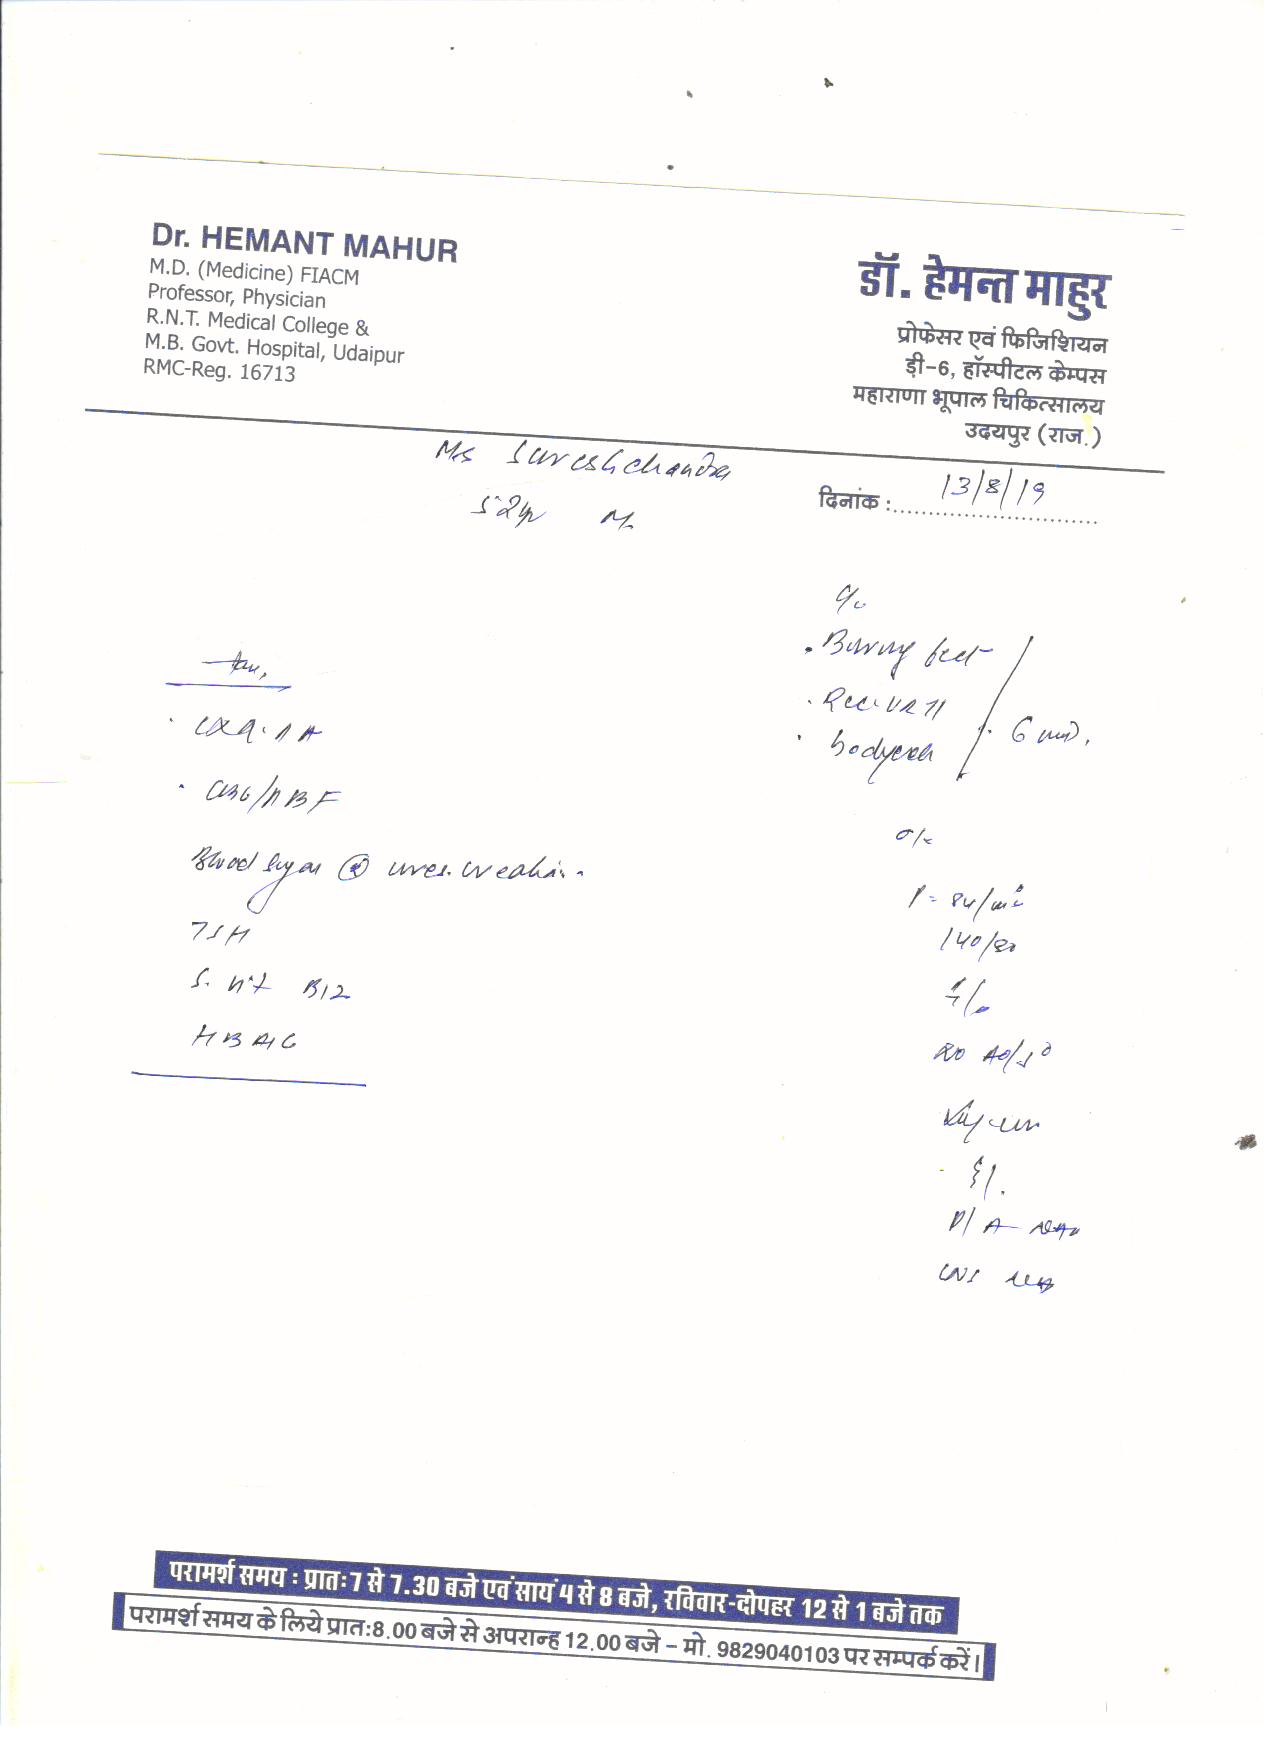 Dr. HEMANT MAHUR
M.D. (Medicine) FIACM
Professor, Physician
R.N.T. Medical College &
M.B. Govt. Hospital, Udaipur
RMC-Reg. 16713
डॉ. हेमन्त माहुर
प्रोफेसर एवं फिजिशियन
ड़ी-6, हॉस्पीटल केम्पस
महाराणा भूपाल चिकित्सालय
उदयपुर (राज.)
Sureshchandra
52yr M
दिनांक : 13/8/19
c/o
• Burning feet
• Rec. URTI
• bodyache
6
CBC/PBF
Blood Sugar
TSH
S. Vit B12
HBA1C
o/e
P = 84/min
140/80
P/A
CNS
परामर्श समय : प्रातः7 से 7.30 बजे एवं सायं 4 से 8 बजे, रविवार-दोपहर 12 से 1 बजे तक
परामर्श समय के लिये प्रात:8.00 बजे से अपरान्ह 12.00 बजे – मो. 9829040103 पर सम्पर्क करें।